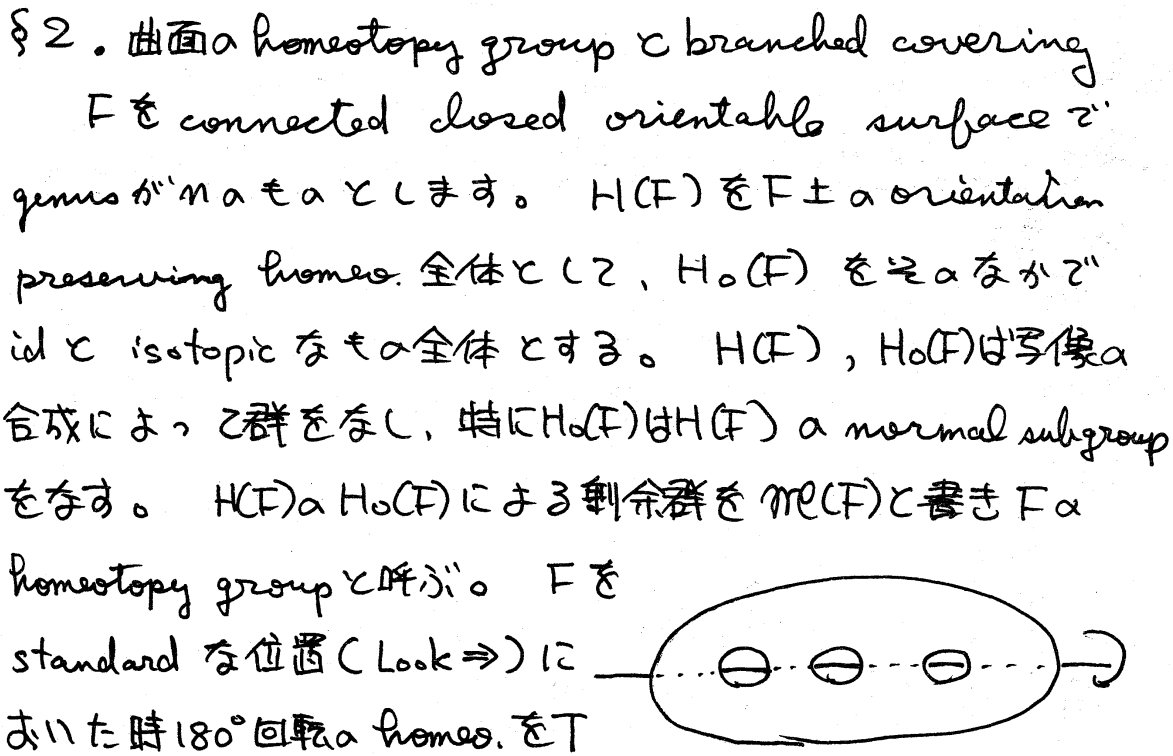 §2. 曲面の homeotopy group と branched covering
Fを connected closed orientable surface で
genusが n のものとします。 H(F) を F 上の orientation
preserving homeo. 全体として、H₀(F) をそのなかで
id と isotopic なもの全体とする。 H(F), H₀(F)は写像の
合成によって群をなし、特にH₀(F)はH(F) の normal subgroup
をなす。 H(F)の H₀(F)による剰余群を 𝓜(F)と書き Fの
homeotopy group と呼ぶ。 Fを
standard な位置(Look⇒)に
おいた時180°回転の homeo. をT